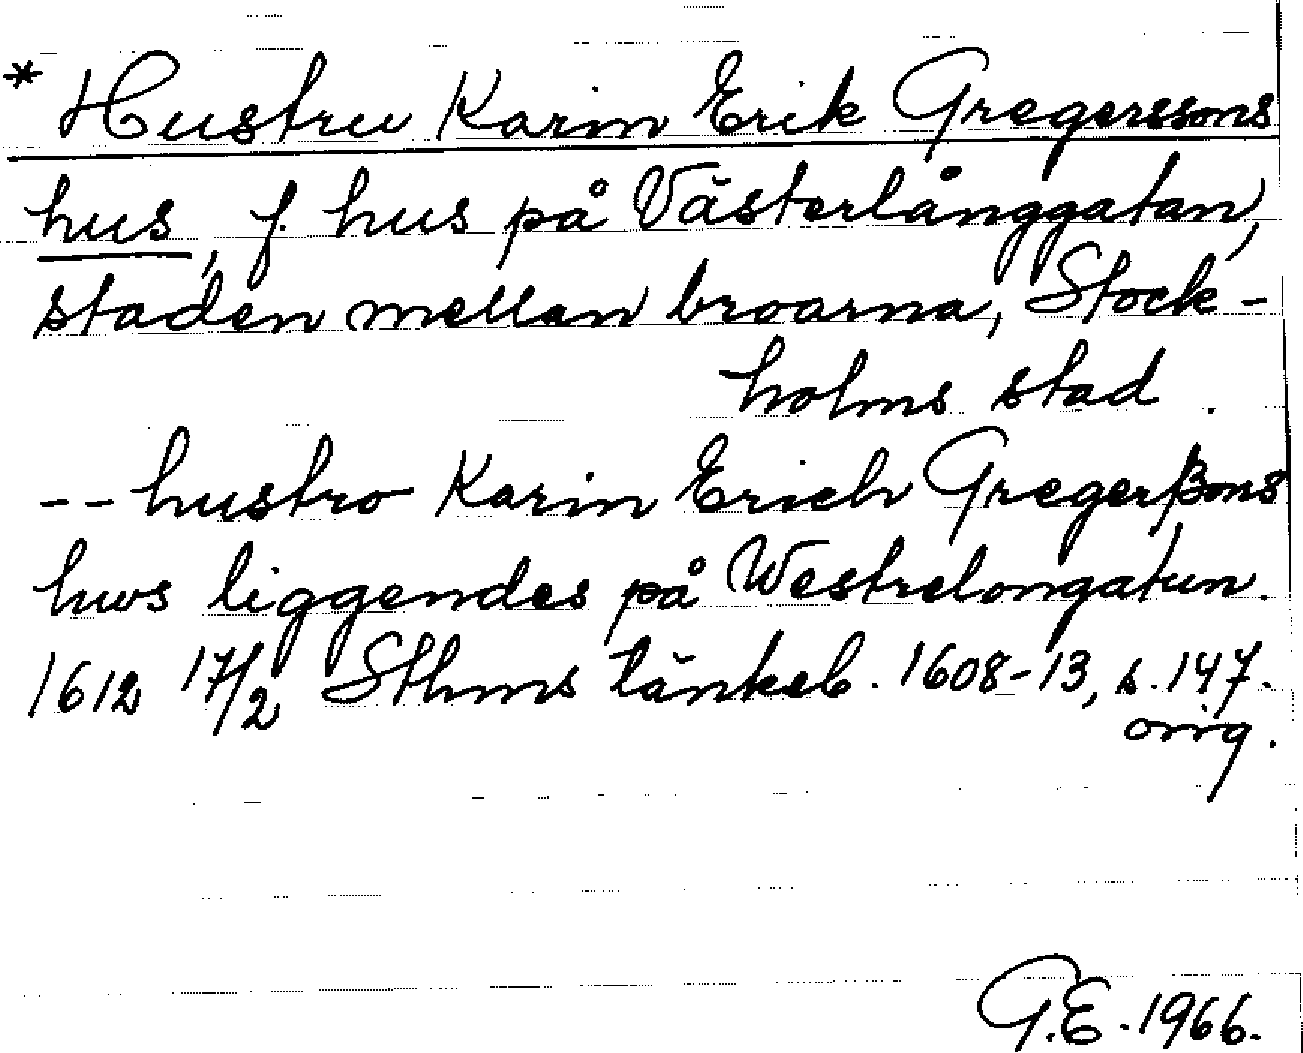 * Hustru Karin Erik Gregerssons
hus, f. hus på Västerlånggatan,
staden mellan broarna, Stock-
holms stad.
-- hustro Karin Erich Gregerßons
hws liggendes på Westrelongatun.
1612 17/2 Sthms tänkeb. 1608-13, s. 147.
orig.
G.E. 1966.